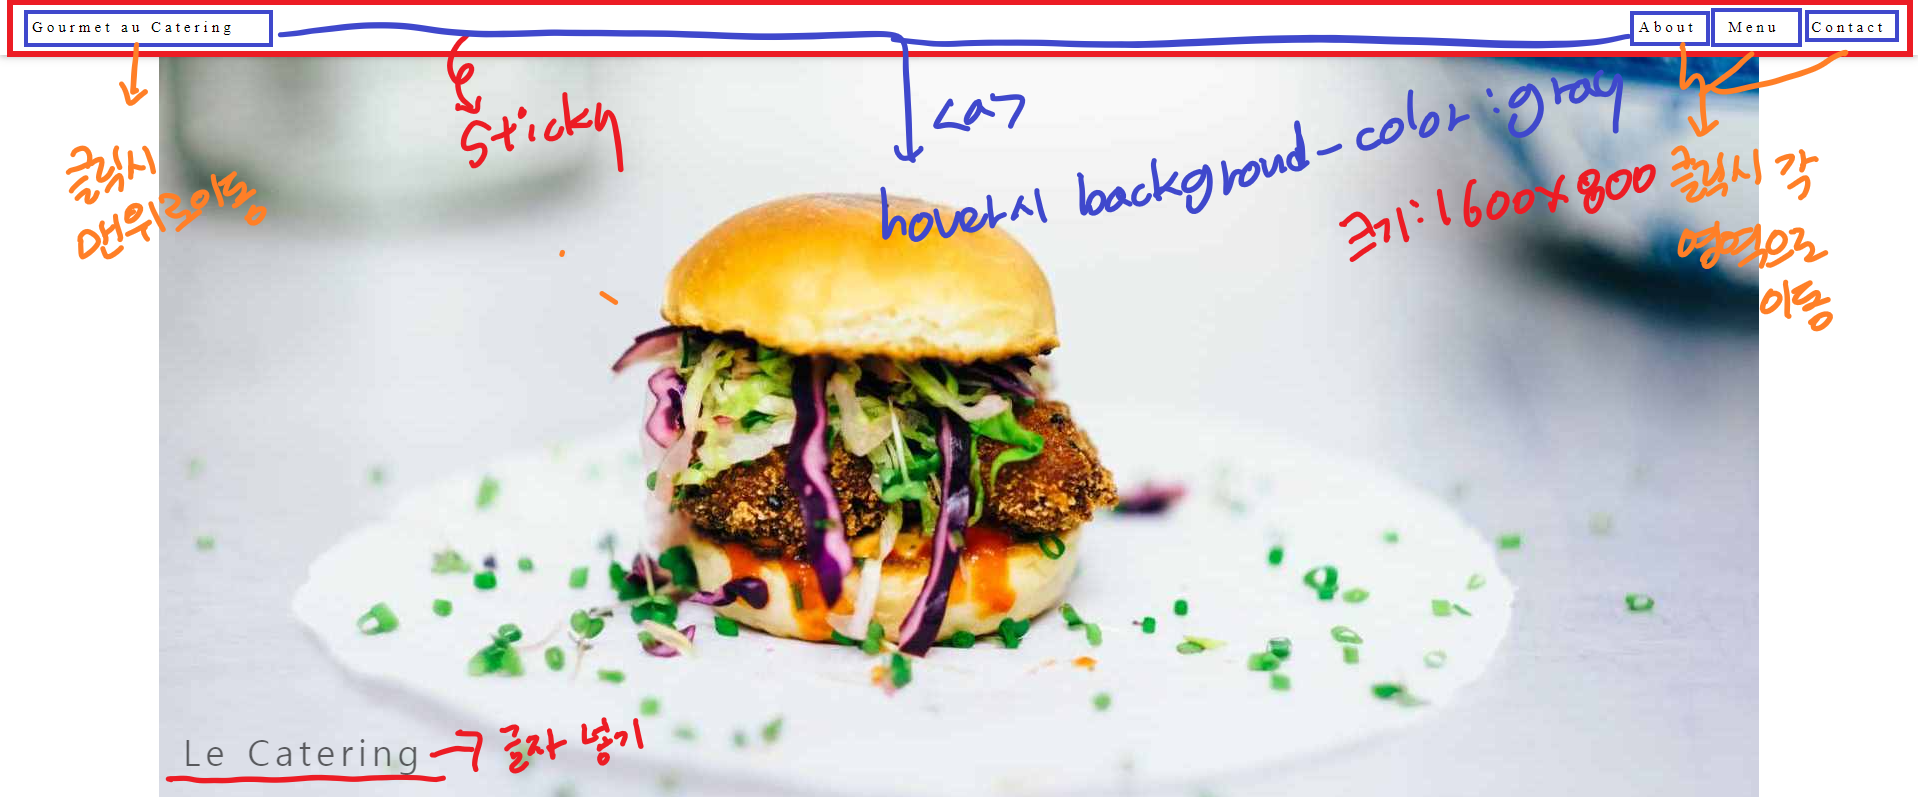 Gourmet au Catering
About
Menu
Contact
클릭시
맨위로이동
Sticky
<a>
hover시 background-color:gray
크기:1600x800
클릭시 각
영역으로
이동
Le Catering
글자 넣기